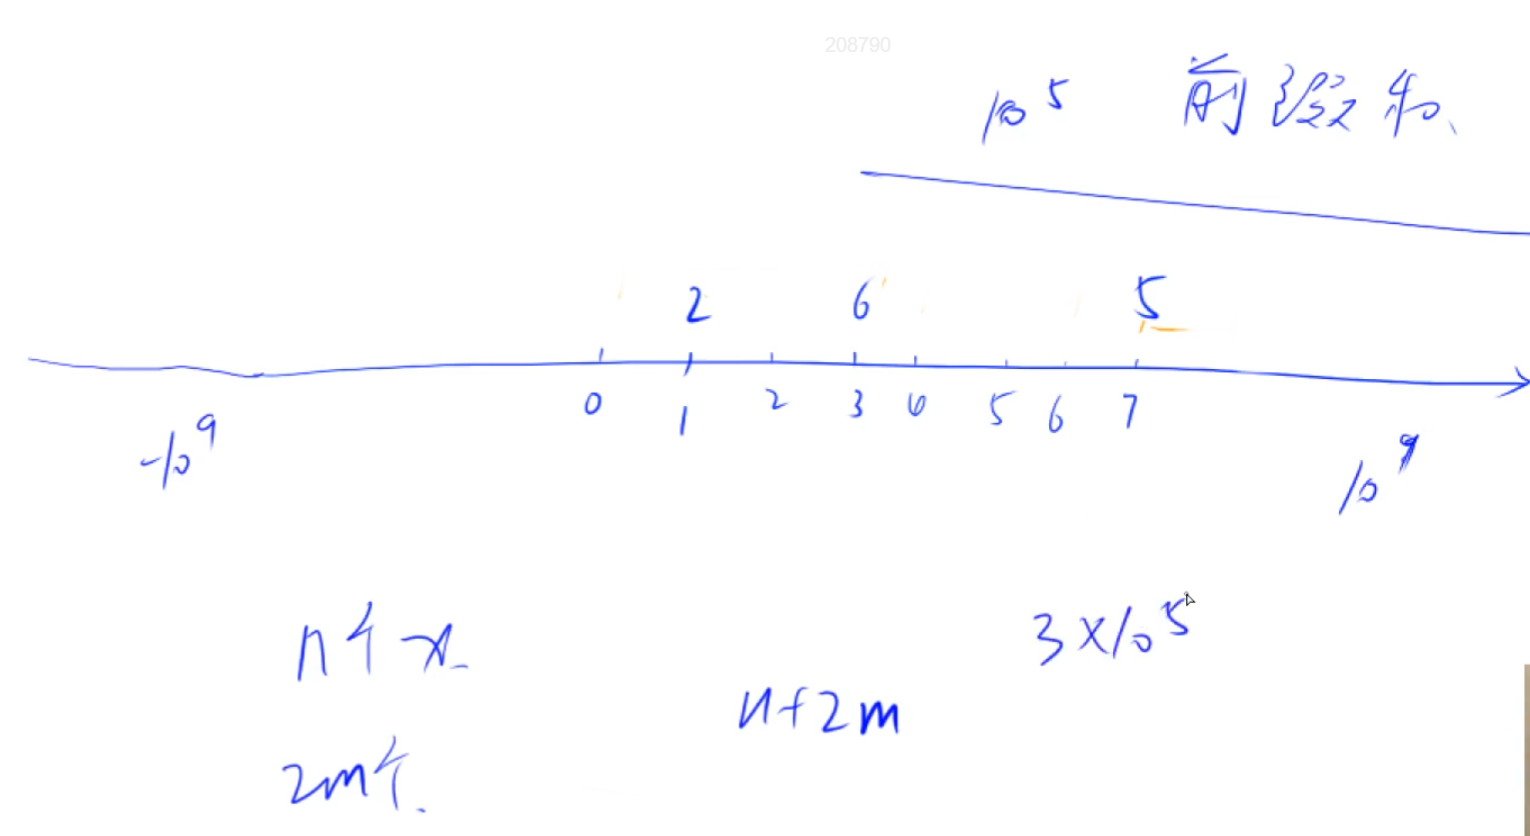 208790
10^5 前缀和
2 6 5
0 1 2 3 4 5 6 7
-10^9 10^9
n个x
3×10^5
n+2m
2m个